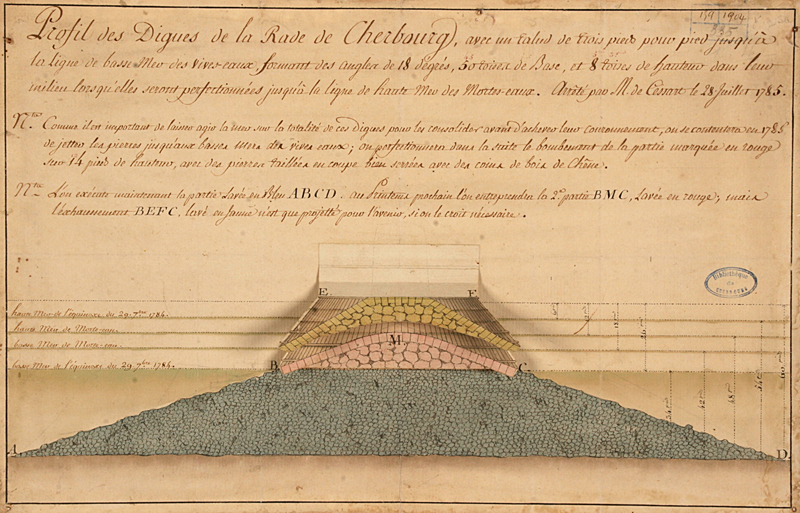 Profil des Digues de la Rade de Cherbourg, avec un talud de trois pieds pour pied jusqu'à
la ligne de basse Mer des vives-eaux, formant des angles de 18 degrés, 50 toises de Base, et 8 toises de hauteur dans leur
milieu lorsqu'elles seront perfectionnées jusqu'à la ligne de haute Mer des Mortes-eaux. Arrêté par M. de Cessart le 28 Juillet 1785.
Nta. Comme il est important de laisser agir la mer sur la totalité de ces digues pour les consolider avant d'achever leur couronnement, on se contentera en 1785
de jetter les pierres jusqu'aux basses mers des vives eaux; on perfectionnera dans la suite le bombement de la partie marquée en rouge
sur 14 pieds de hauteur, avec des pierres taillées en coupe bien serrées avec des coins de bois de Chêne.
Nta. L'on exécute maintenant la partie Lavée en bleu ABCD. au Printems prochain l'on entreprendra la 2e. partie BMC, Lavée en rouge; mais
l'exhaussement BEFC, lavé en Jaune n'est que projetté pour l'avenir, si on le croit nécessaire.
1904
Bibliothèque
de
CHERBOURG
E. F.
haute Mer de l'équinoxe du 29. 7bre. 1784.
haute Mer de Morte-eau.
M.
basse Mer de Morte-eau.
basse Mer de l'équinoxe du 29 7bre 1784.
B C
A D.